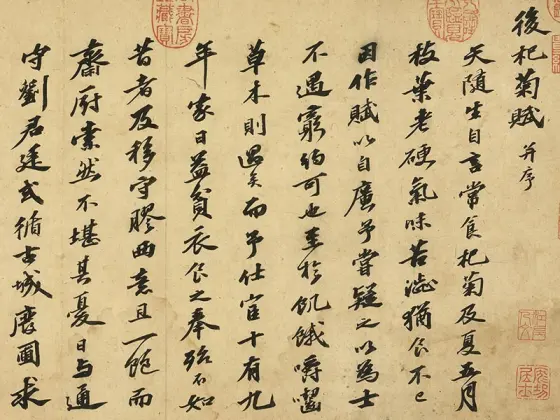 後杞菊賦 并序
天隨生自言常食杞菊及夏五月
枝葉老硬氣味苦澁猶食不已
因作賦以自廣予嘗疑之以為士
不遇窮約可也至於飢餓嚼齧
草木則過矣而予仕宦十有九
年家日益貧衣食之奉殆不如
昔者及移守膠西意且一飽而
齋厨索然不堪其憂日与通
守劉君廷式循古城廢圃求